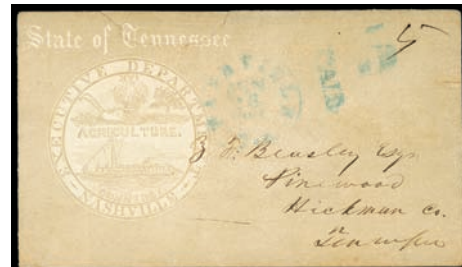 State of Tennessee
5
PAID
EXECUTIVE DEPARTMENT
AGRICULTURE.
COMMERCE
NASHVILLE
Beasley Esqr
Pinewood
Hickman Co.
Tennessee